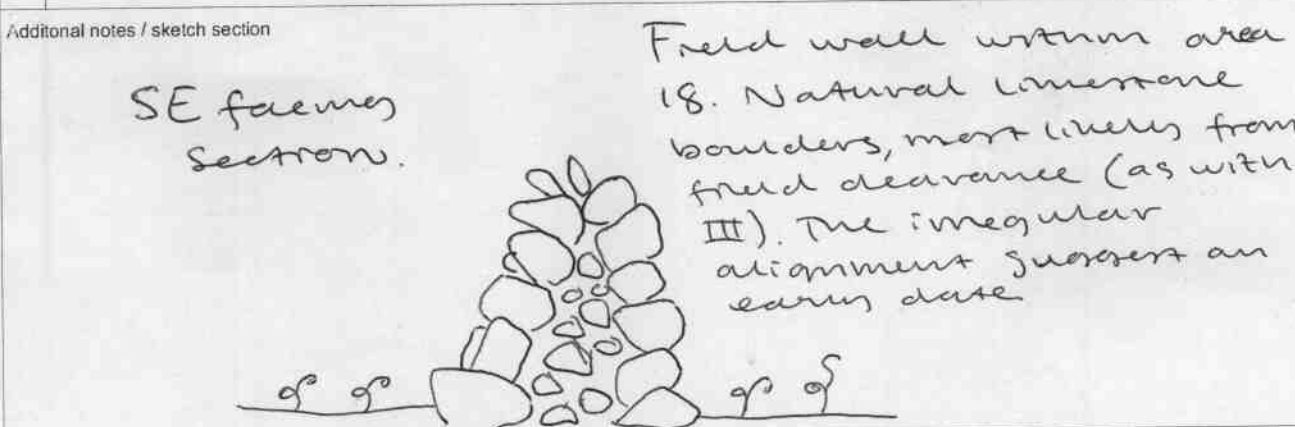 Additonal notes / sketch section
SE facing
section.
Field wall within area
18. Natural limestone
boulders, most likely from
field clearance (as with
III). The irregular
alignment suggest an
early date